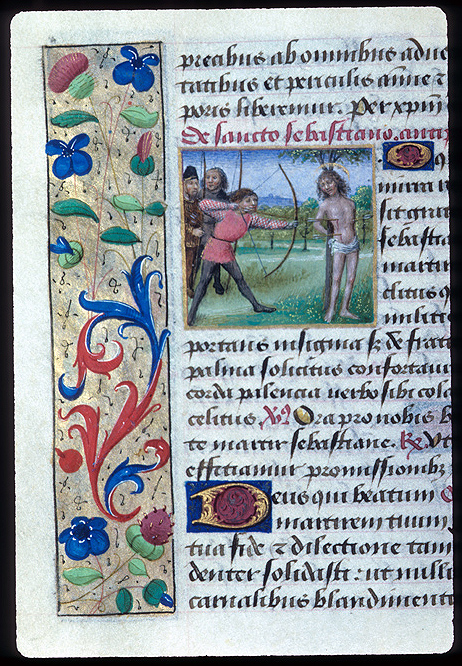 precibus ab omnibus adue
tatibus et periculis anime z
poris liberemur. Per xpm
De sancto sebastiano. anti
O q
mira
sit gra
sebastia
martir
clitus q
militie
portans insignia
palma solicitus confortaui
corda palencia verbo sibi cola
celitus Ora pro nobis b
te martir sebastiane. Ut
efficiamur promissionibz
Deus qui beatum
martirem tuum
tua fide z dilectione tam
denter solidasti: ut nulli
carnalibus blandimento